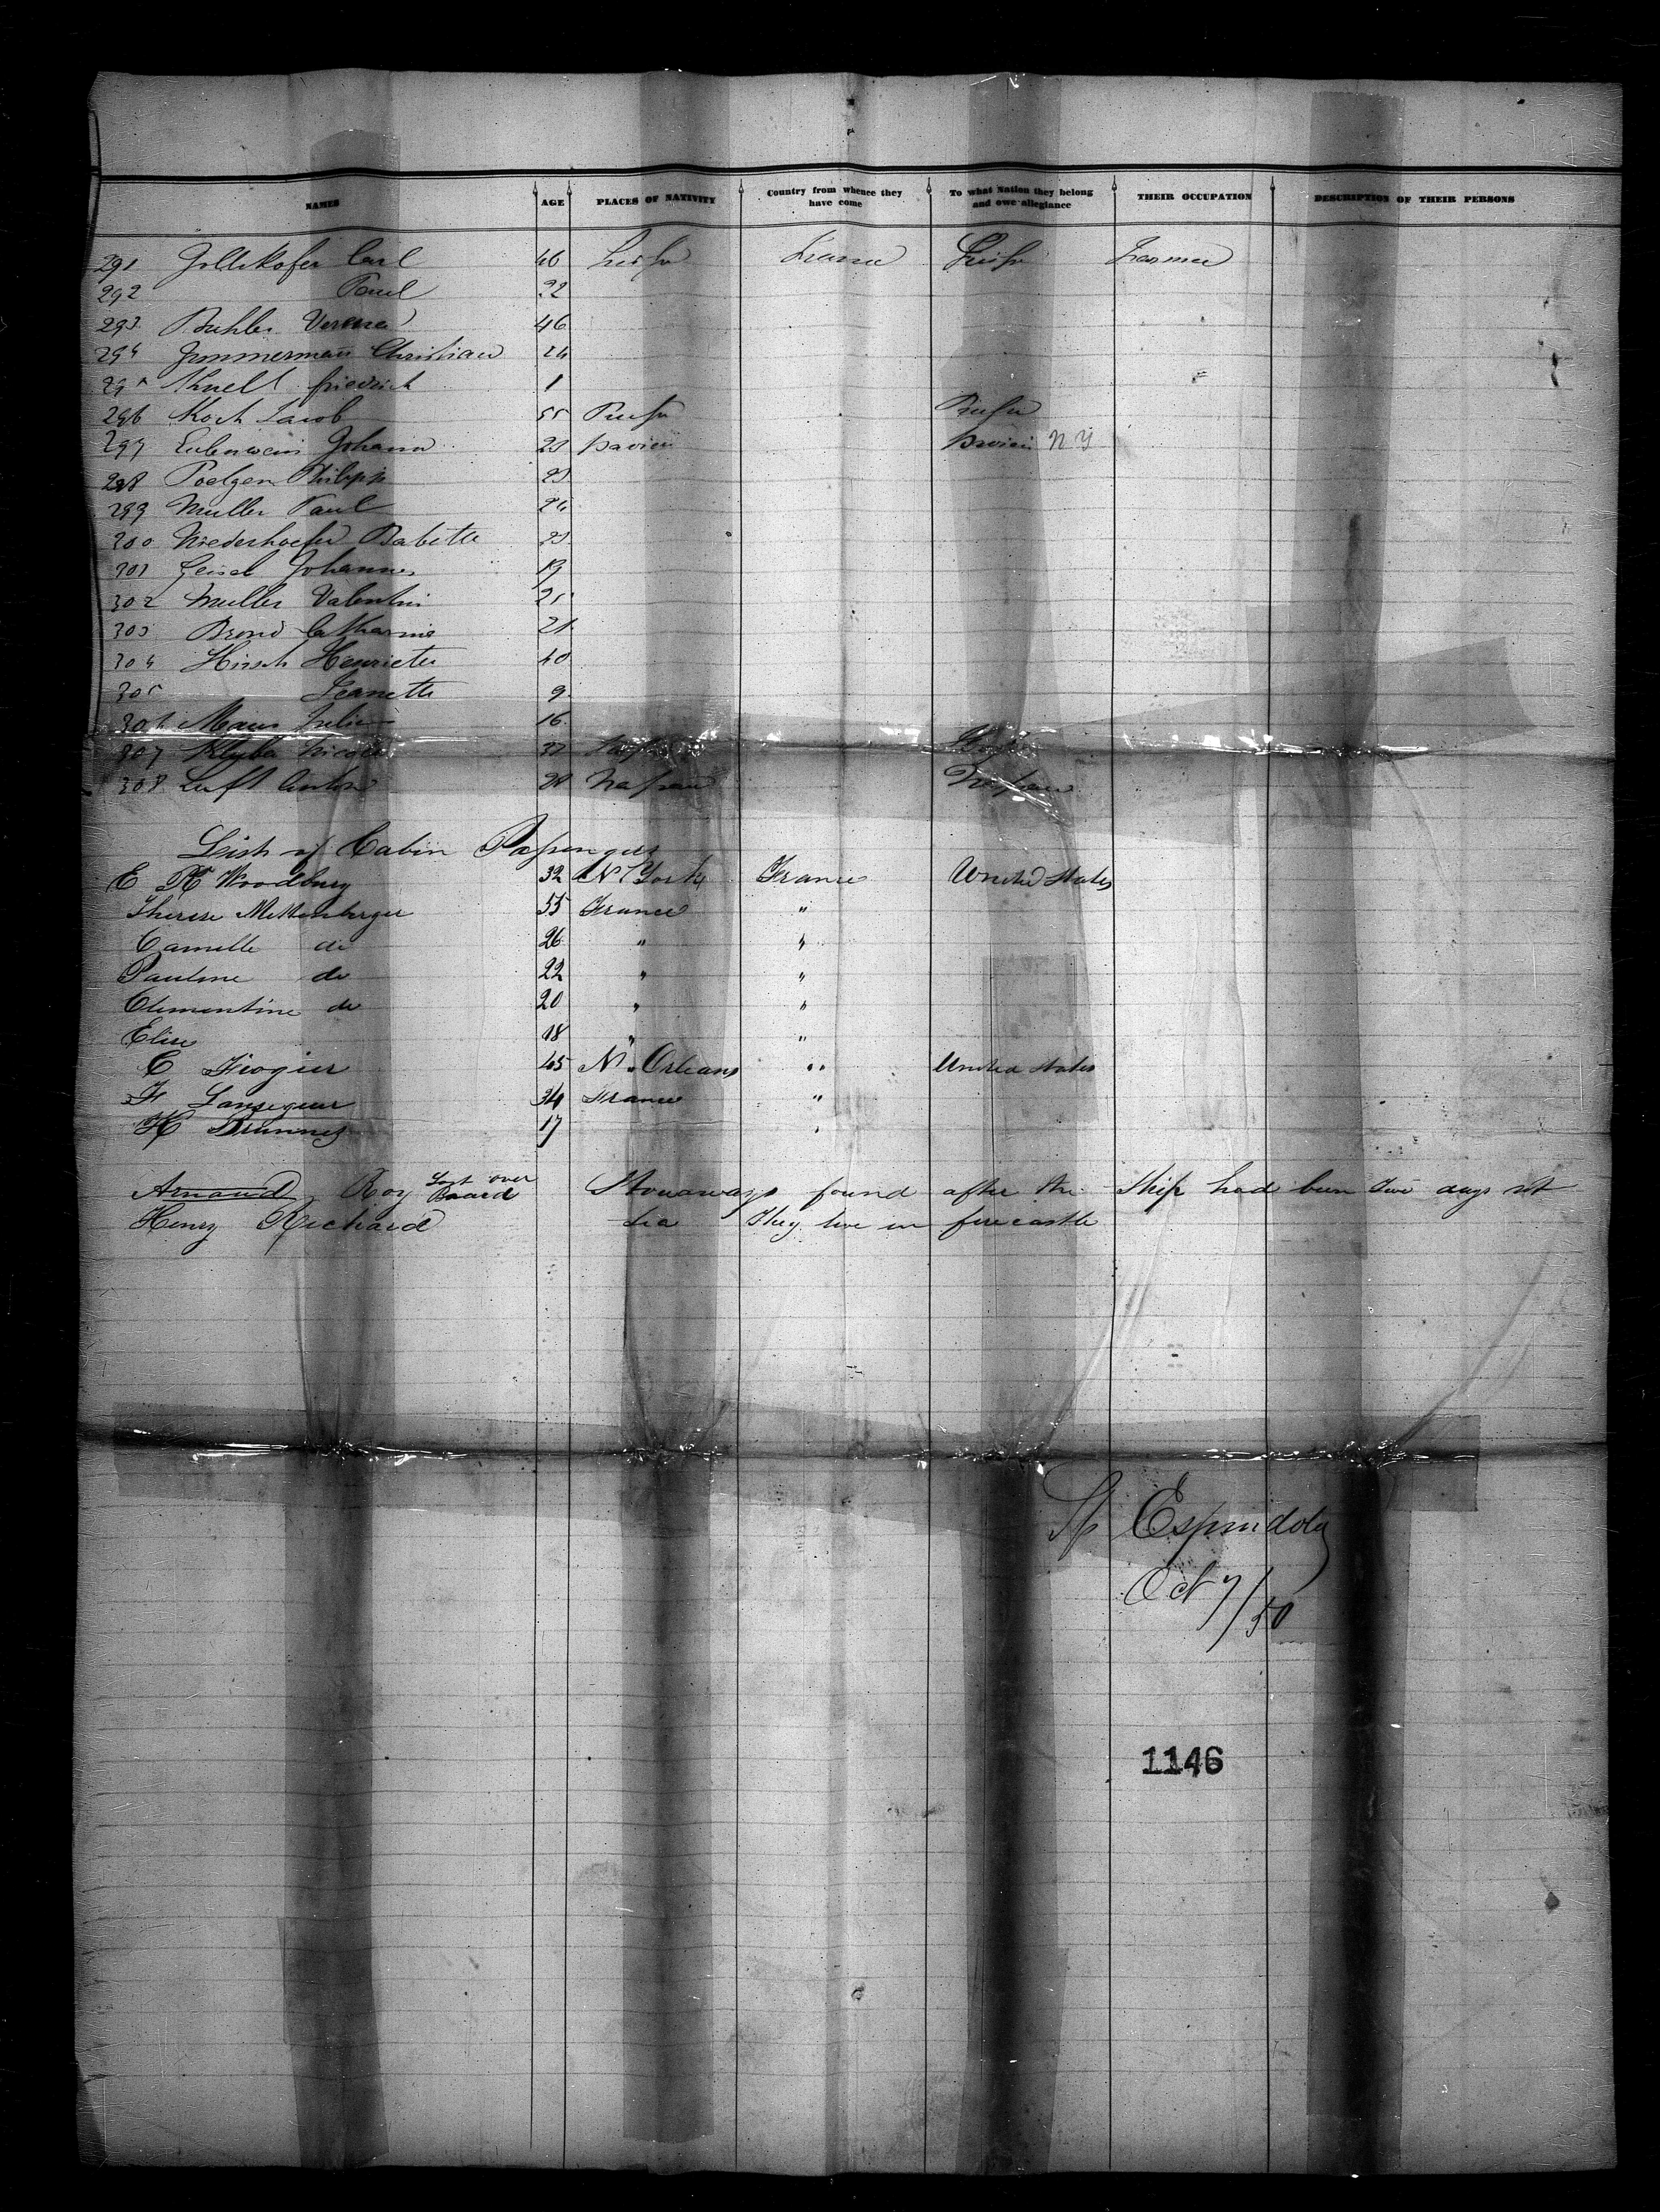 NAMES AGE PLACES OF NATIVITY Country from whence they have come To what Nation they belong and owe allegiance THEIR OCCUPATION DESCRIPTION OF THEIR PERSONS
291 Zollikofer Carl 46
292 Paul 22
293 Buhler Verena 46
294 Zimmermann Christian 24
295 Knell friedrich 1
296 Koch Jacob 55
297 Johann 23 Bavien Bavien N Y
298 Poelgen Philipp 23
299 Muller Paul 24
300 Niederhoefer Babette 23
301 Geisel Johannes 19
302 Muller Valentin 25
303 Catharine 21
304 Hirsch Henriette 40
305 Jeanette 9
306 Maus Julie 16
307 37
308 Luft Anton 28 Nassau Nassau
List of Cabin Passengers
E K Woodbury 32 N York France United States
Therese Mettenberger 55 France "
Camille do 26 " "
Pauline do 22 " "
Clementine do 20 " "
Elise 18 " "
C 45 N. Orleans " United States
F 34 France "
H 17 "
Arnaud Roy Lost over Board Stowaways found after the Ship had been two days at
Henry Richard Sea They live in forecastle
Sp Espindola
Oct 7/50
1146